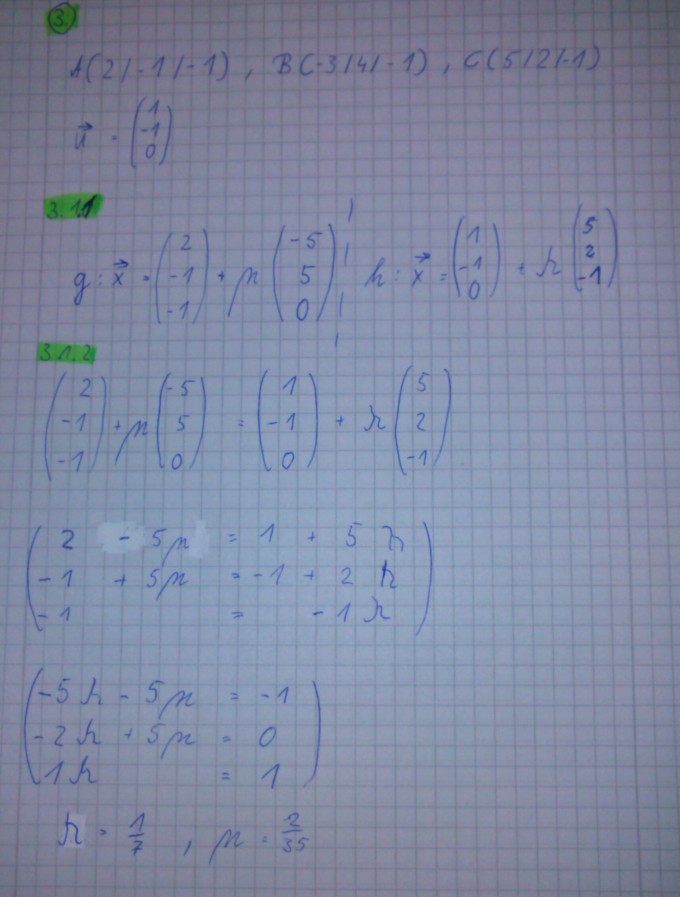 3.
A(2|-1|-1), B(-3|4|-1), C(5|2|-1)
u⃗ = (1 -1 0)
3.1.1
g: x⃗ = (2 -1 -1) + n (-5 5 0) h: x⃗ = (1 -1 0) + k (5 2 -1)
3.1.2
(2 -1 -1) + n (-5 5 0) = (1 -1 0) + k (5 2 -1)
2 - 5n = 1 + 5k
-1 + 5n = -1 + 2k
-1 = -1k
-5k - 5n = -1
-2k + 5n = 0
1k = 1
k = 1/7, n = 2/35